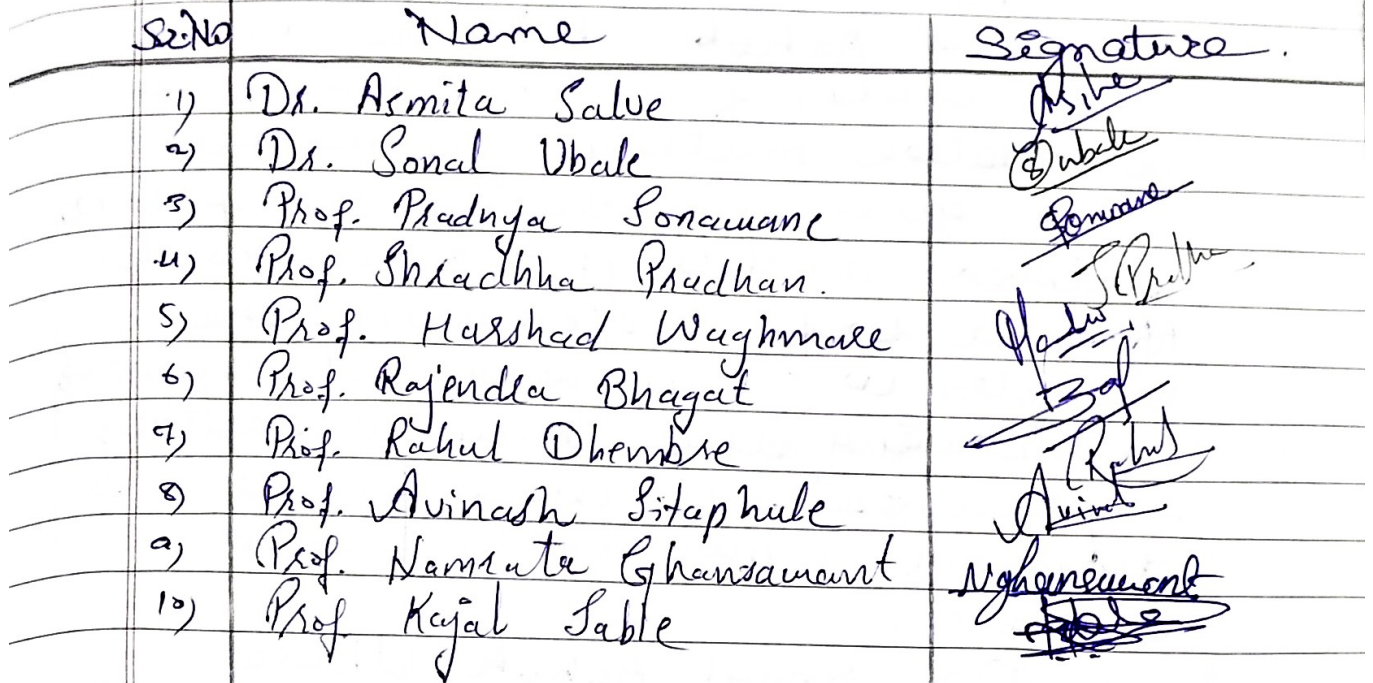 Sr.No Name Signature.
1) Dr. Asmita Salve
2) Dr. Sonal Ubale Subale
3) Prof. Pradnya Sonawane Sonawane
4) Prof. Shradhha Pradhan. SPradha
5) Prof. Harshad Waghmare
6) Prof. Rajendra Bhagat
7) Prof. Rahul Dhembre Rahul
8) Prof. Avinash Sitaphule Avinash
9) Prof. Namrata Ghansawant NGhansawant
10) Prof Kajal Sable